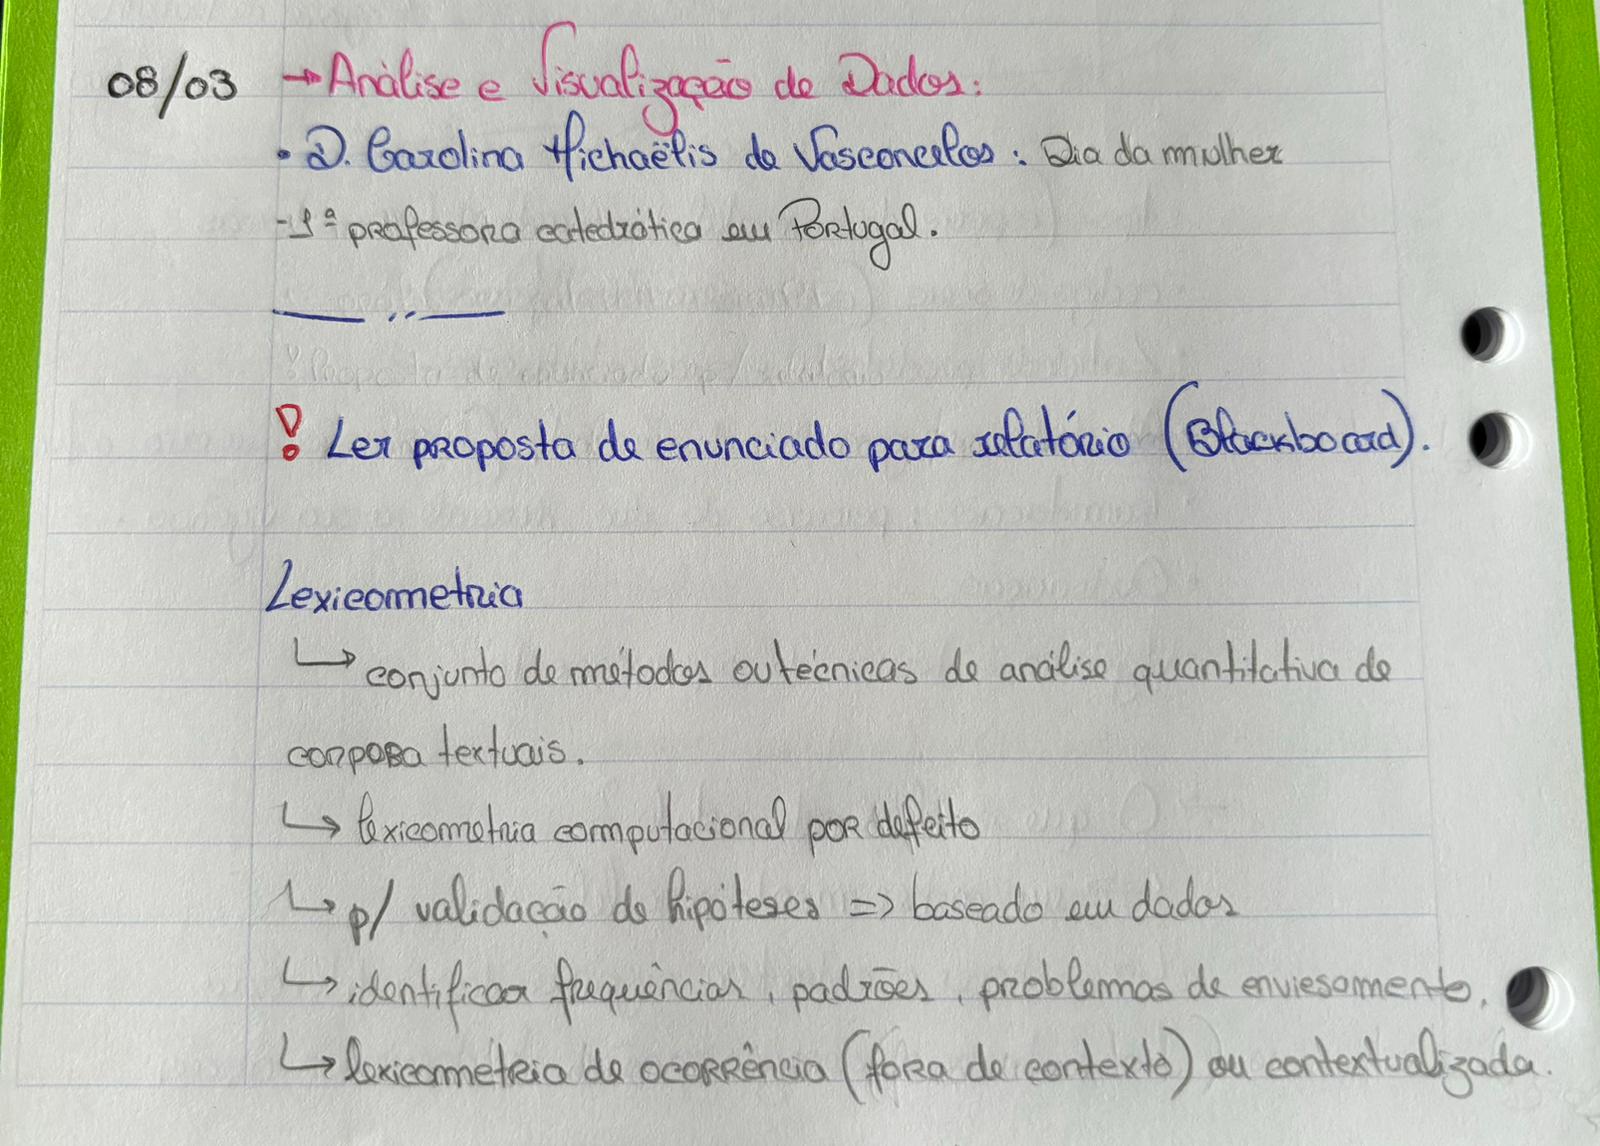 08/03 → Análise e Visualização de Dados:
• D. Carolina Michaëlis de Vasconcelos: Dia da mulher
- 1ª professora catedrática em Portugal.
! Ler proposta de enunciado para relatório (Blackboard).
Lexicometria
↳ conjunto de métodos ou técnicas de análise quantitativa de
corpora textuais.
↳ lexicometria computacional por defeito
↳ p/ validação de hipóteses => baseado em dados
↳ identificar frequências, padrões, problemas de enviesamento.
↳ lexicometria de ocorrência (fora de contexto) ou contextualizada.